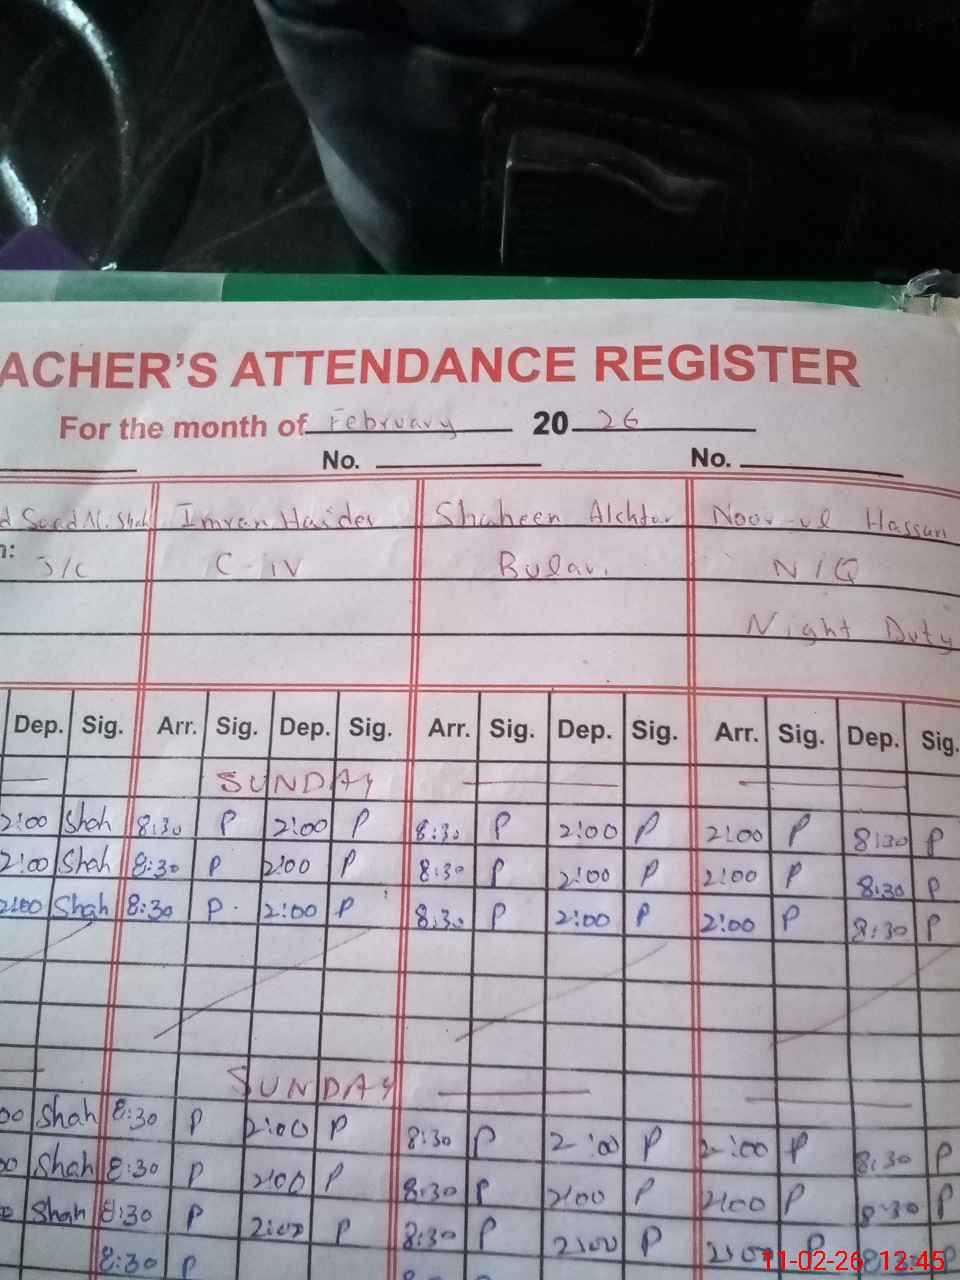 ACHER'S ATTENDANCE REGISTER
For the month of February 20 26
No. No.
d Saad Al. Shah Imran Haider Shaheen Akhtar Noor-ul Hassan
n: J/C C-IV Bulavi N/Q
Night Duty
Dep. Sig. Arr. Sig. Dep. Sig. Arr. Sig. Dep. Sig. Arr. Sig. Dep. Sig.
SUNDAY
2:00 Shah 8:30 P 2:00 P 8:30 P 2:00 P 2:00 P 8:30 P
2:00 Shah 8:30 P 2:00 P 8:30 P 2:00 P 2:00 P 8:30 P
2:00 Shah 8:30 P. 2:00 P 8:30 P 2:00 P 2:00 P 8:30 P
SUNDAY
00 Shah 8:30 P 2:00 P 8:30 P 2:00 P 2:00 P 8:30 P
00 Shah 8:30 P 2:00 P 8:30 P 2:00 P 2:00 P 8:30 P
Shah 8:30 P 2:00 P 8:30 P 2:00 P 2:00 P
8:30 P
11-02-26 12:45